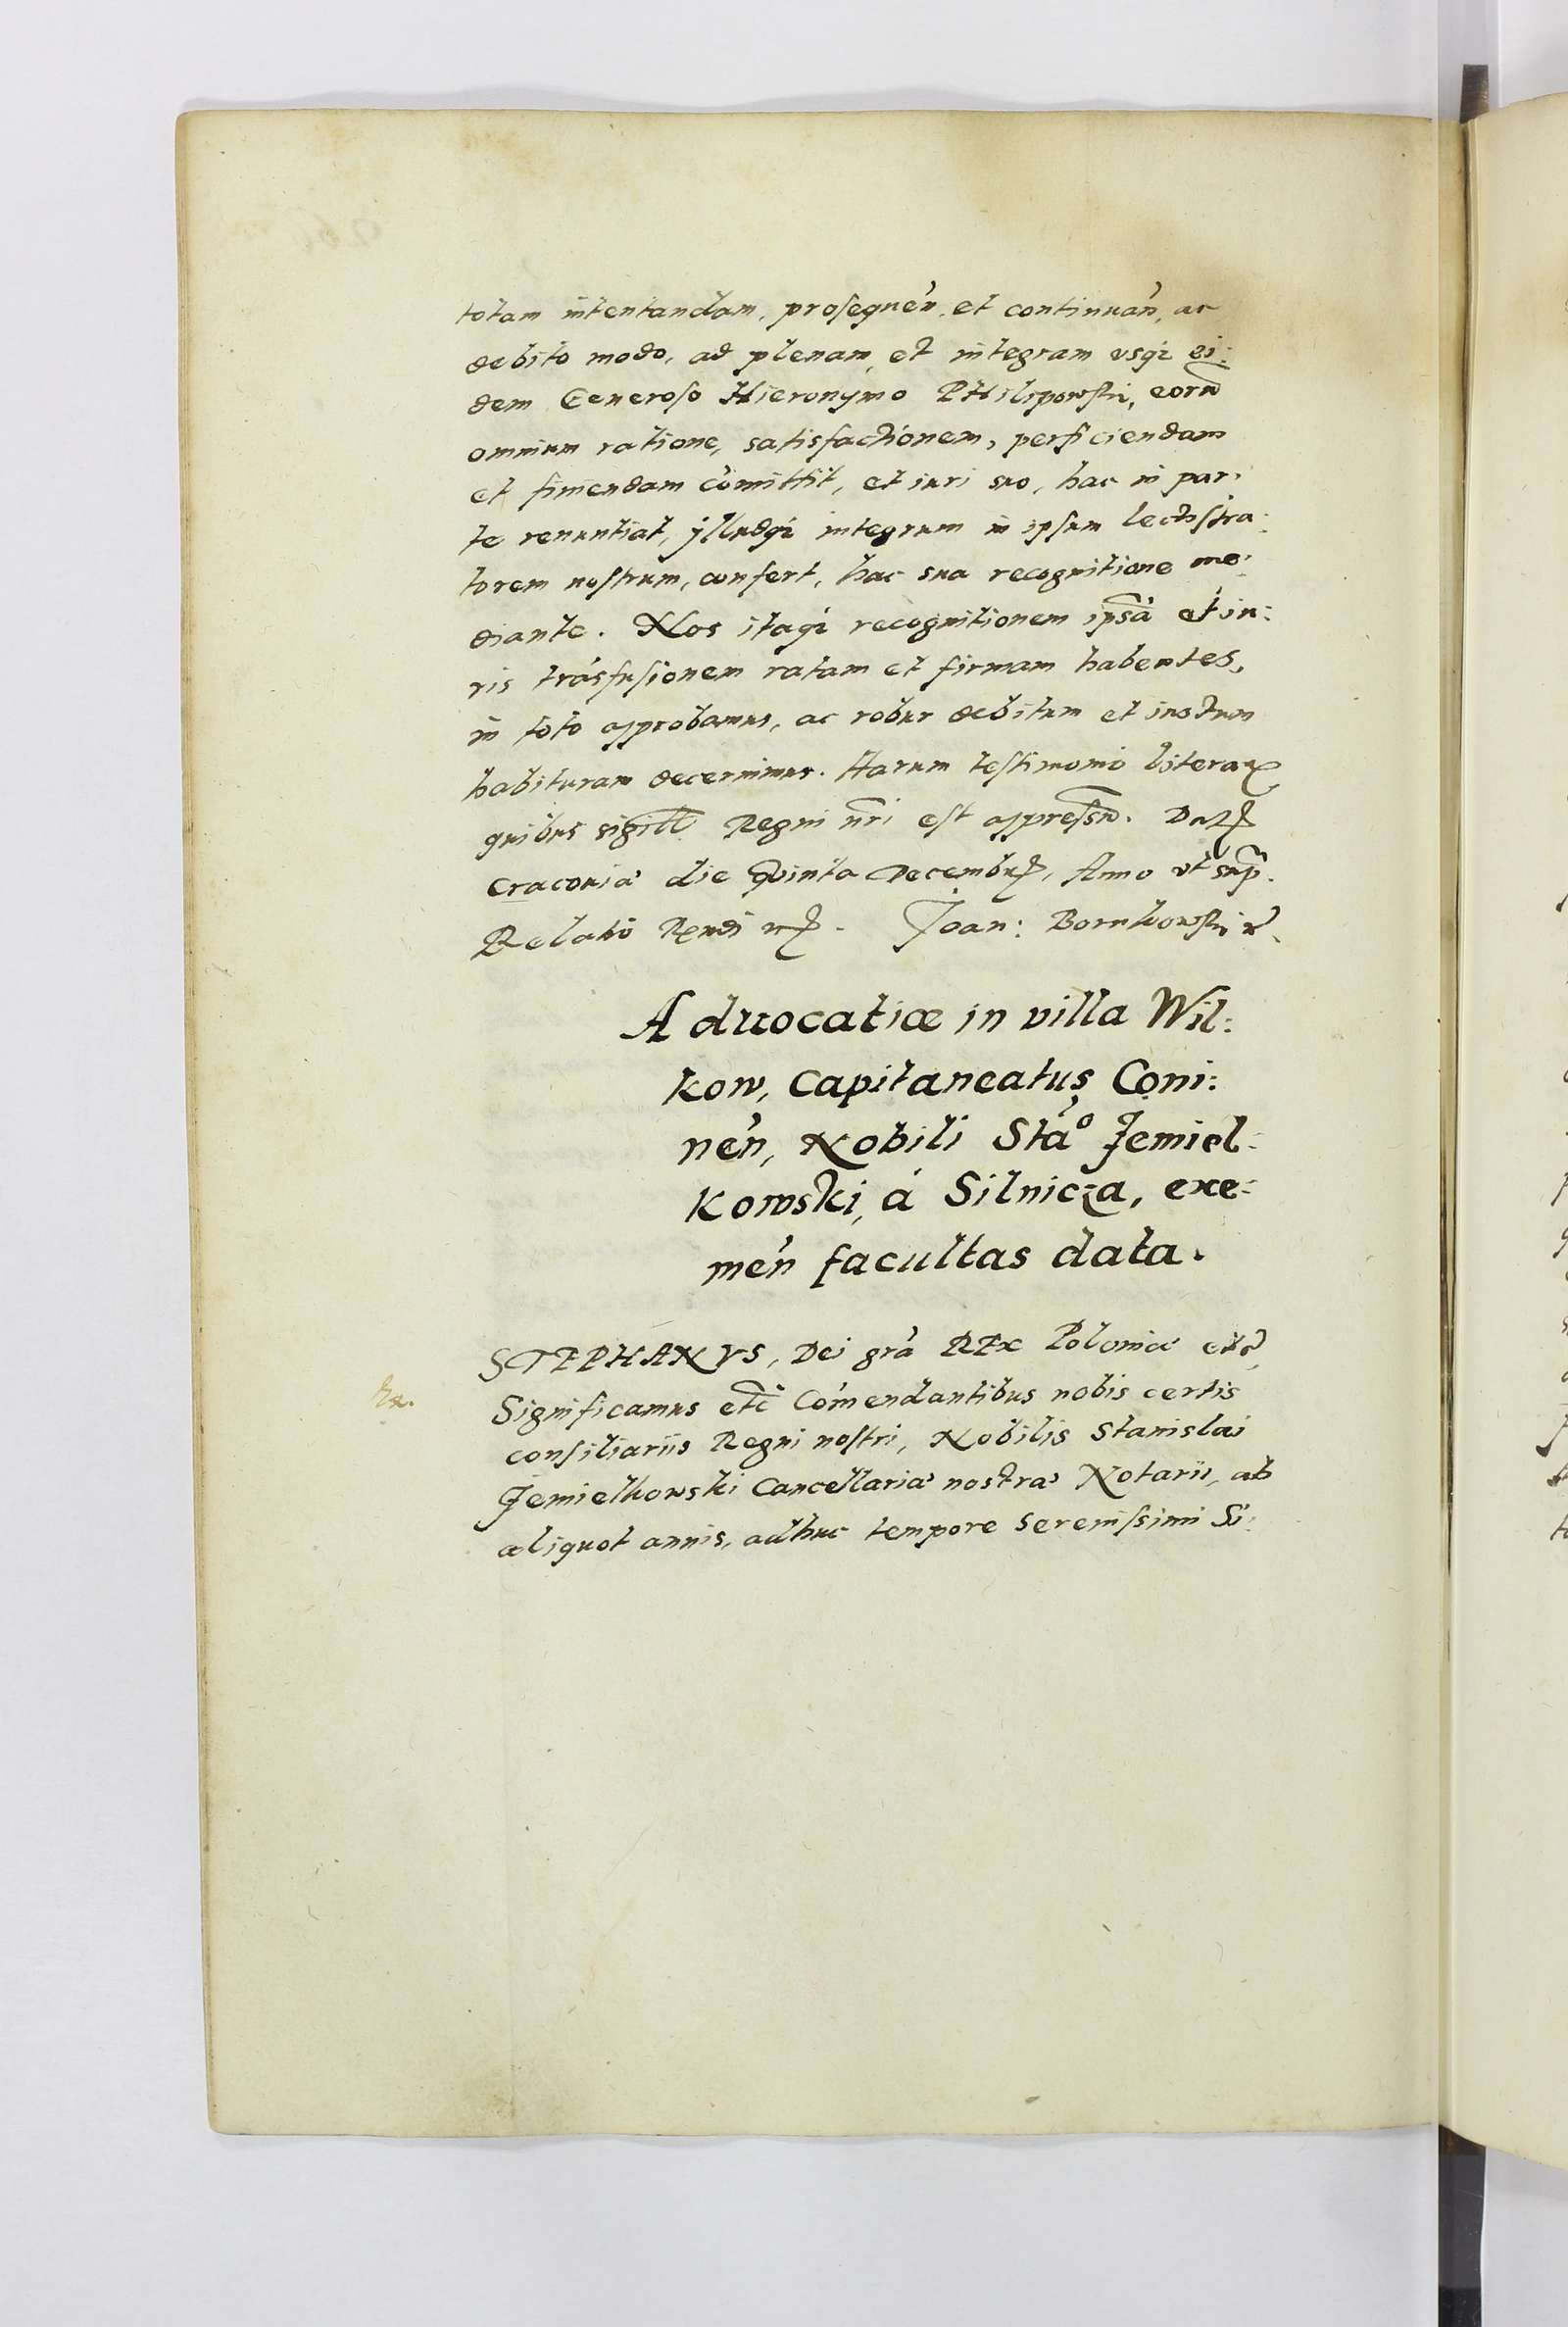 totam intentandam, prosequen̓, et continuan̓, ac
debito modo, ad plenam, et integram usq́ꝫ ei:
dem Generoso Hieronymo PHilipowski, eorū
omnium ratione, satisfactionem, perficiendam
et finiendam com̓ittit, et iuri suo, hac in par:
te renuntiat, ylludq́ꝫ integrum in ipsum
torem nostrum, confert, hac sua recognitione me:
diante. Nos itaq́ꝫ recognitionem ipsā et iu:
ris trásfusionem ratam et firmam habentes,
in toto approbamus, ac robur debitum et iustum
habituram decernimus. Harum testimonio literaꝝ
quibus sigill̄ Regni nr̄i est appressū. Datꝭ
Cracoviæ die Quinta Decembrꝭ, Anno vt sup̄.
Relatio Joan: Bornkowski
Advocatiæ in villa Wil:
kow, Capitaneatus Coni:
nen̓, Nobili Sta̓º Jemiel:
kowski, á Silnicza, exe:
men̓ facultas data.
STEPHANVS, Dei gra̓ REx Poloniæ etc̄,
Ex.
Significamus etc̄ Com̓endantibus nobis certis
consiliariis Regni nostri, Nobilis Stanislai
Jemielkowski Cancellariæ nostræ Notarii, ab
aliquot annis, adhuc tempore serenissimi Si: